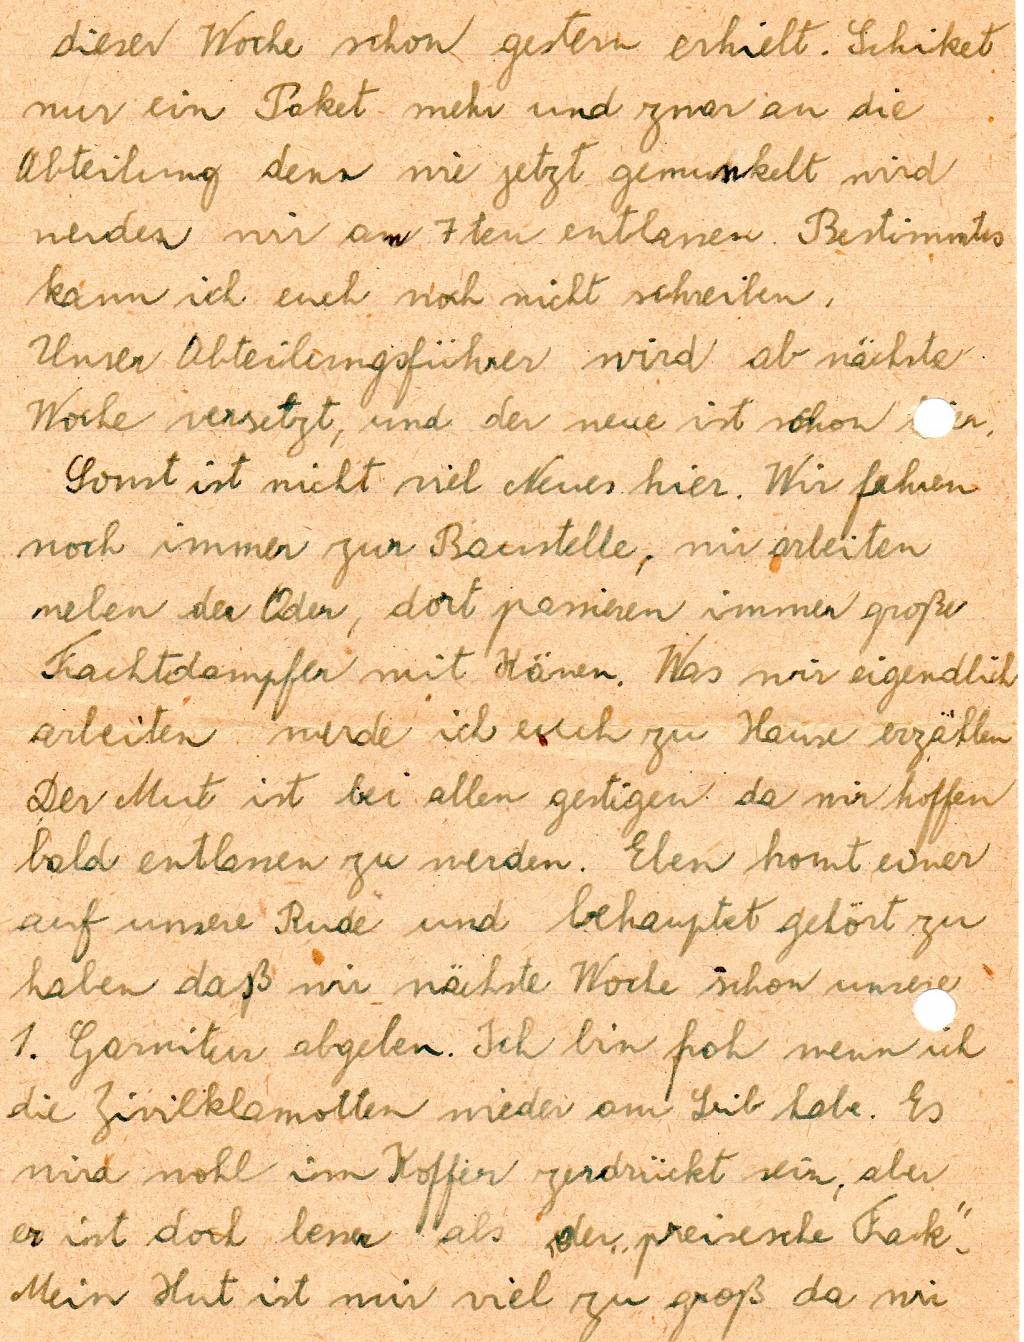 dieser Woche schon gestern erhielt. Schiket
nur ein Paket mehr und zwar an die
Abteilung denn wie jetzt gemunkelt wird
werden wir am 7ten entlassen. Bestimmtes
kann ich euch noch nicht schreiben.
Unser Abteilungsführer wird ab nächste
Woche versetzt, und der neue ist schon hier.
Sonst ist nicht viel Neues hier. Wir fahren
noch immer zur Baustelle, wir arbeiten
neben der Oder, dort passieren immer große
Frachtdampfer mit Känen. Was wir eigendlich
arbeiten werde ich euch zu Hause erzählen
Der Mut ist bei allen gestigen da wir hoffen
bald entlassen zu werden. Eben komt einer
auf unsere Bude und behauptet gehört zu
haben daß wir nächste Woche schon unsere
1. Garnitur abgeben. Ich bin froh wenn ich
die Zivilklamotten wieder am Leib habe. Es
wird wohl im Koffer zerdrückt sein, aber
er ist doch besser als der „preisesche Frack".
Mein Hut ist mir viel zu groß da wir